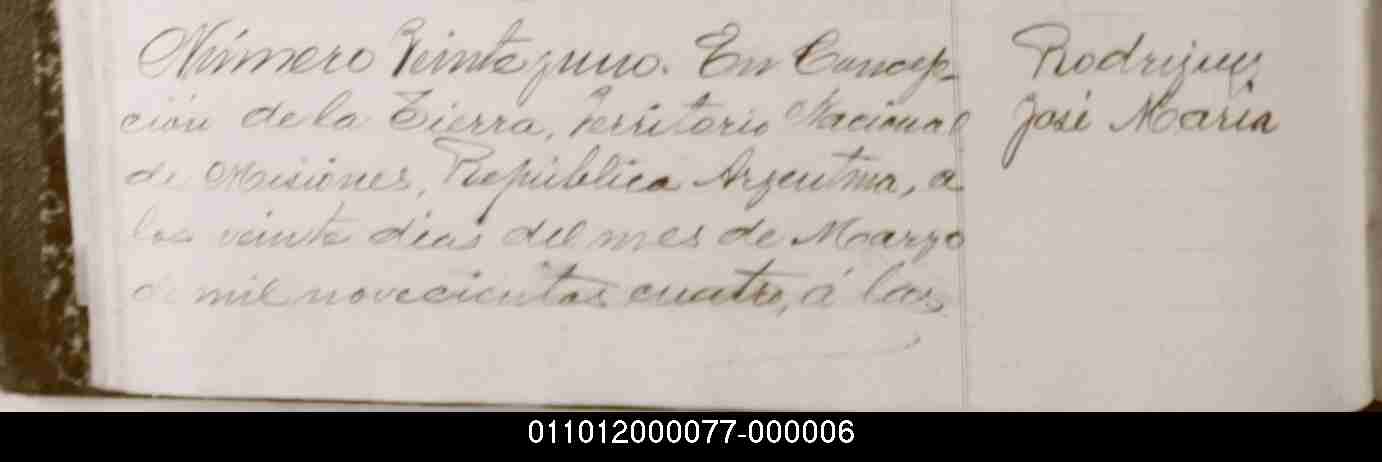 Número Veinte y uno. En Concep-
ción de la Tierra, Territorio Nacional
de Misiones, República Argentina, a
los veinte dias del mes de Marzo
de mil novecientos cuatro, á las
Rodriguez
José Maria
011012000077-000006